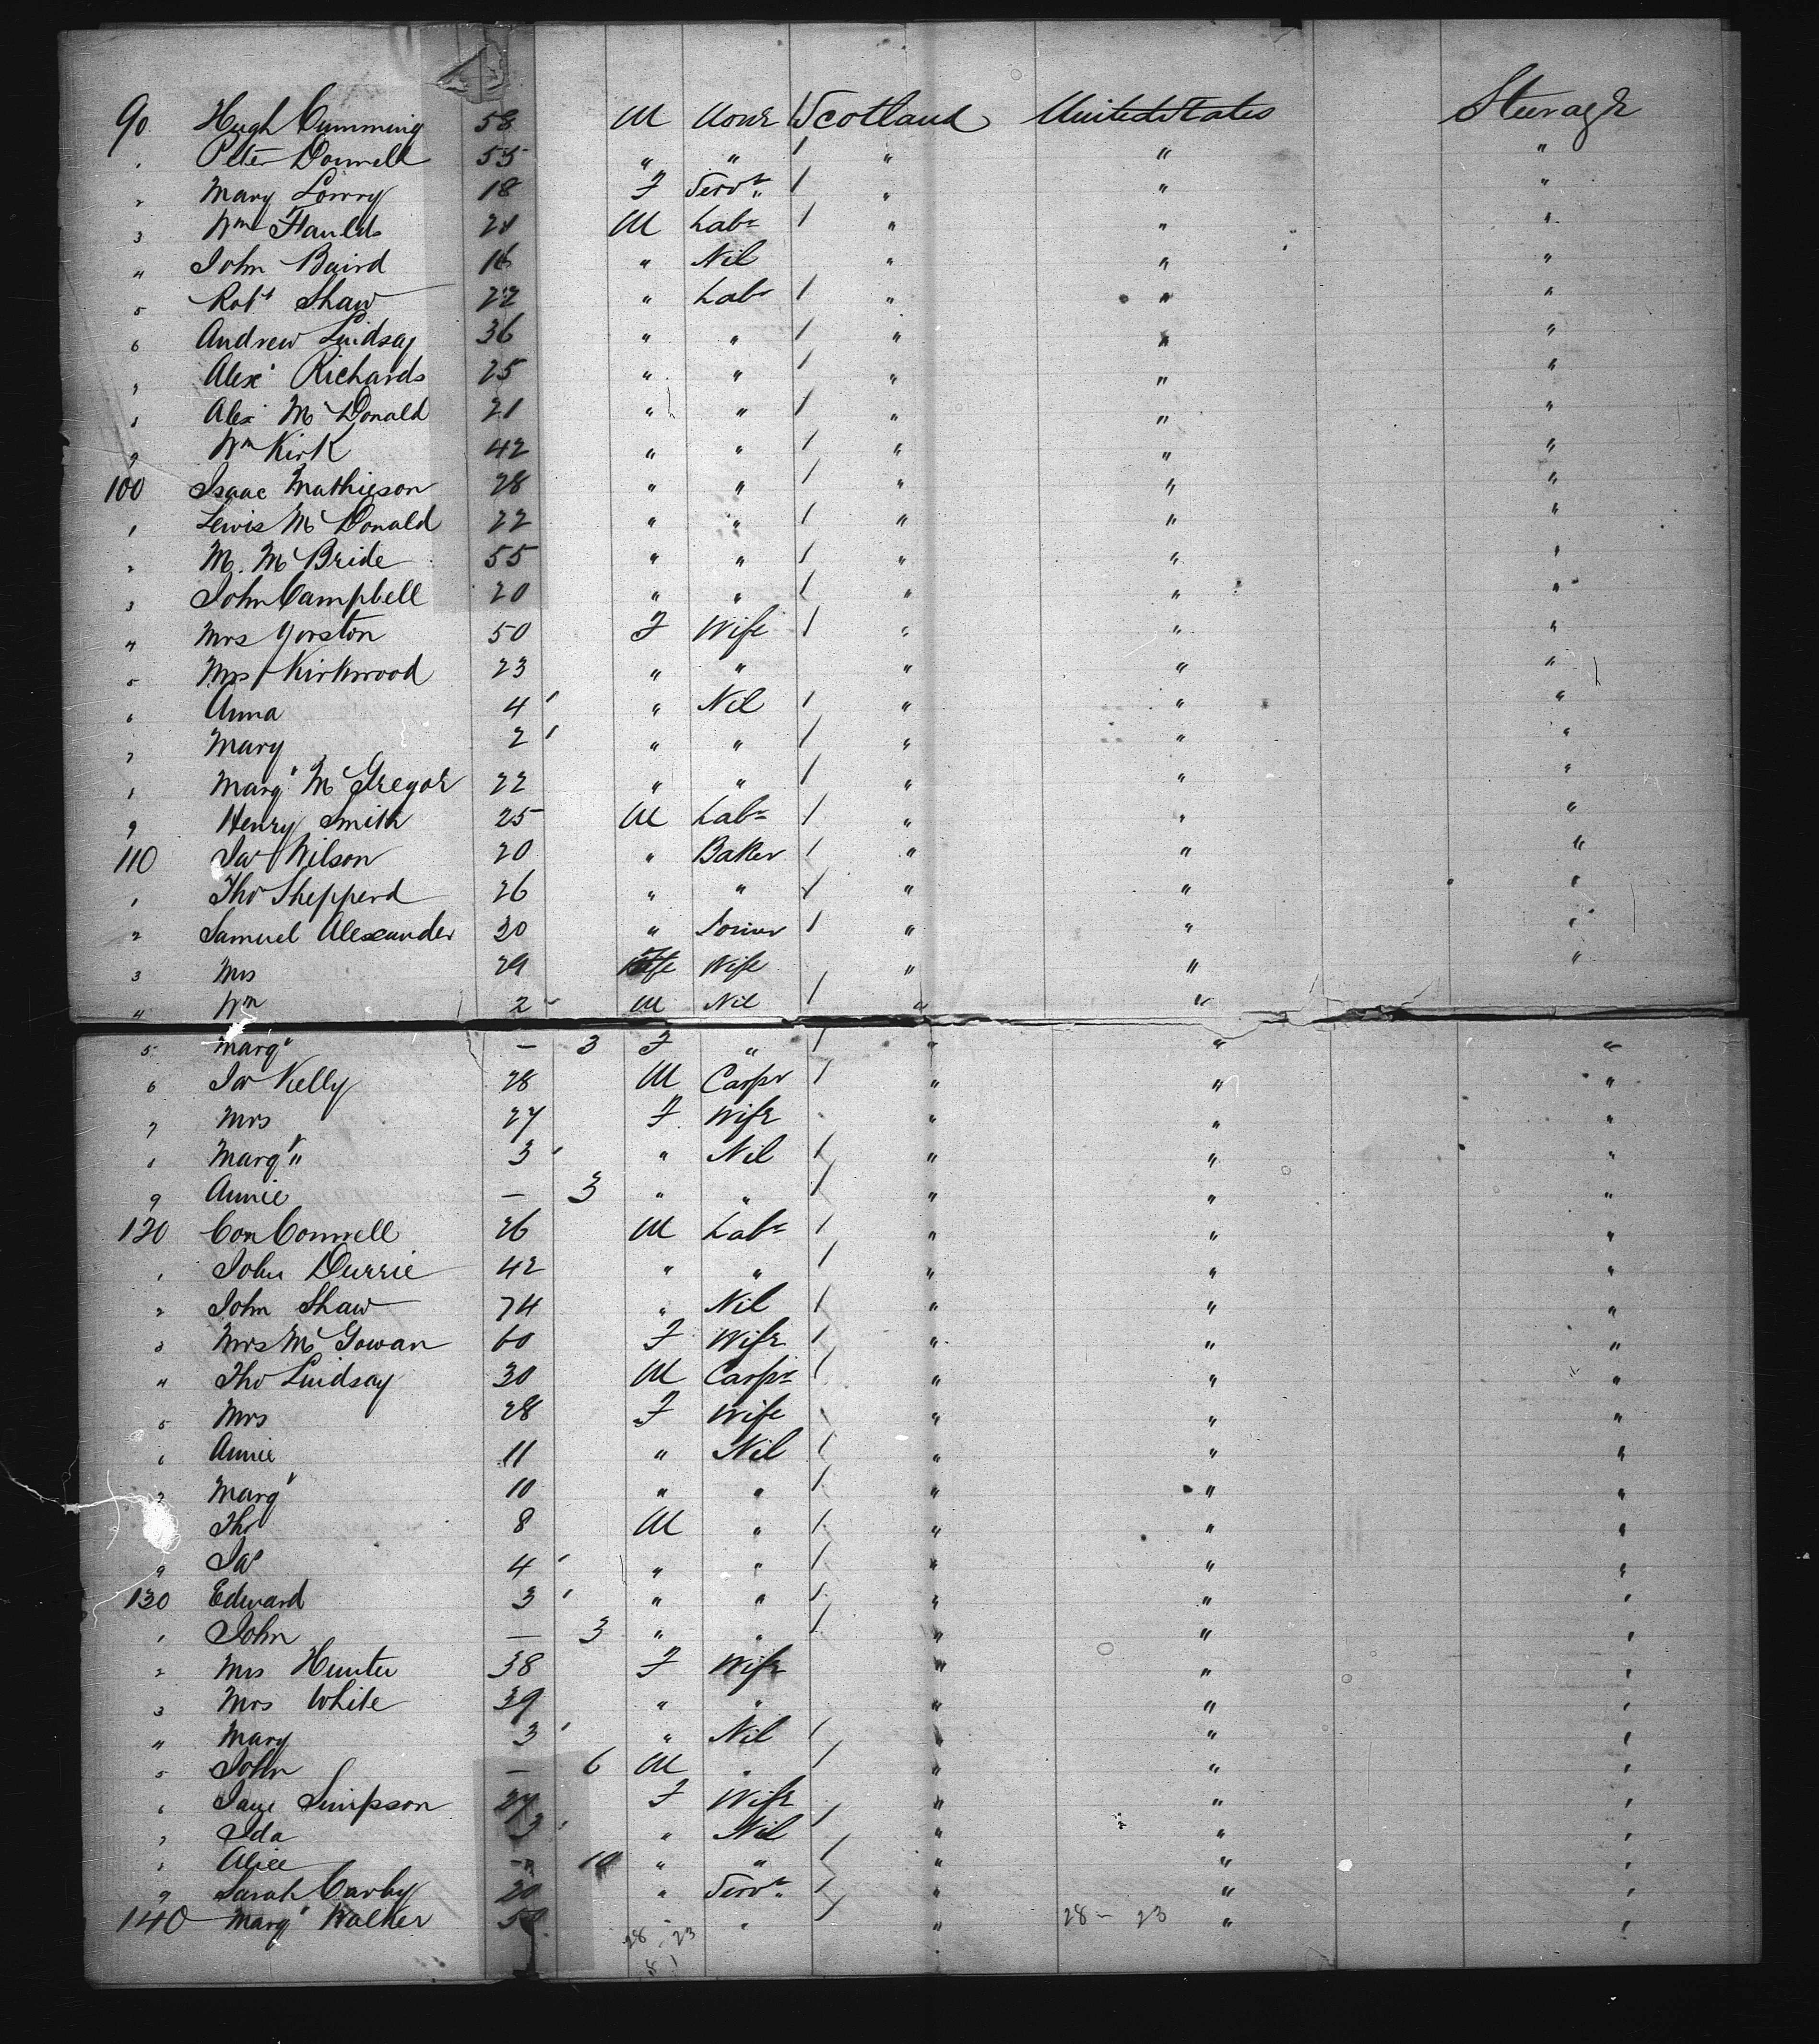 90 Hugh Cumming 58 M None 1 Scotland United States Steerage
" Peter Donnell 55 " " 1 " " "
2 Mary Lowry 18 F Servt 1 " " "
3 Wm Faulds 21 M Labr 1 " " "
" John Baird 16 " Nil " " "
5 Robt Shaw 22 " Labr 1 " " "
6 Andrew Lindsay 36 " " 1 " " "
7 Alexr Richards 25 " " 1 " " "
8 Alex McDonald 21 " " 1 " " "
9 Wm Kirk 42 " " 1 " " "
100 Isaac Mathieson 28 " " 1 " " "
1 Lewis McDonald 22 " " 1 " " "
2 M. McBride 55 " " 1 " " "
3 John Campbell 20 " " 1 " " "
4 Mrs Yorston 50 F Wife 1 " " "
5 Mrs Kirkwood 23 " " " " "
6 Anna 4 ' " Nil 1 " " "
7 Mary 2 ' " " 1 " " "
8 Margt McGregor 22 " " 1 " " "
9 Henry Smith 25 M Labr 1 " " "
110 Jas Wilson 20 " Baker 1 " " "
1 Thos Shepperd 26 " " 1 " " "
2 Samuel Alexander 30 " Joiner 1 " " "
3 Mrs 29 Wife " " "
" Wm 2 - M Nil 1 " " "
5 Margt — 3 F " 1 " " "
6 Jas Kelly 28 M Carpr 1 " " "
7 Mrs 27 F Wife " " "
8 Margt " 3 ' " Nil 1 " " "
9 Annie — 3 " " 1 " " "
120 Con Connell 26 M Labr 1 " " "
1 John Durrie 42 " " 1 " " "
2 John Shaw 74 " Nil 1 " " "
3 Mrs McGowan 60 F Wife 1 " " "
" Thos Lindsay 30 M Carpr 1 " " "
5 Mrs 28 F Wife " " "
6 Annie 11 " Nil 1 " " "
7 Margt 10 " " 1 " " "
Thos 8 M " 1 " " "
9 Jas 4 ' " " 1 " " "
130 Edward 3 ' " " 1 " " "
1 John — 3 " " 1 " " "
2 Mrs Hunter 38 F Wife " " "
3 Mrs White 39 " " " " "
" Mary 3 ' " Nil 1 " " "
5 John — 6 M " 1 " " "
6 Jane Simpson 27 F Wife " " "
7 Ida 3 ' " Nil 1 " " "
8 Alice — 10 " " 1 " " "
9 Sarah 20 " Servt 1 " " "
140 Margt Walker 50 " " 1 " " "
28 - 23 28 - 23